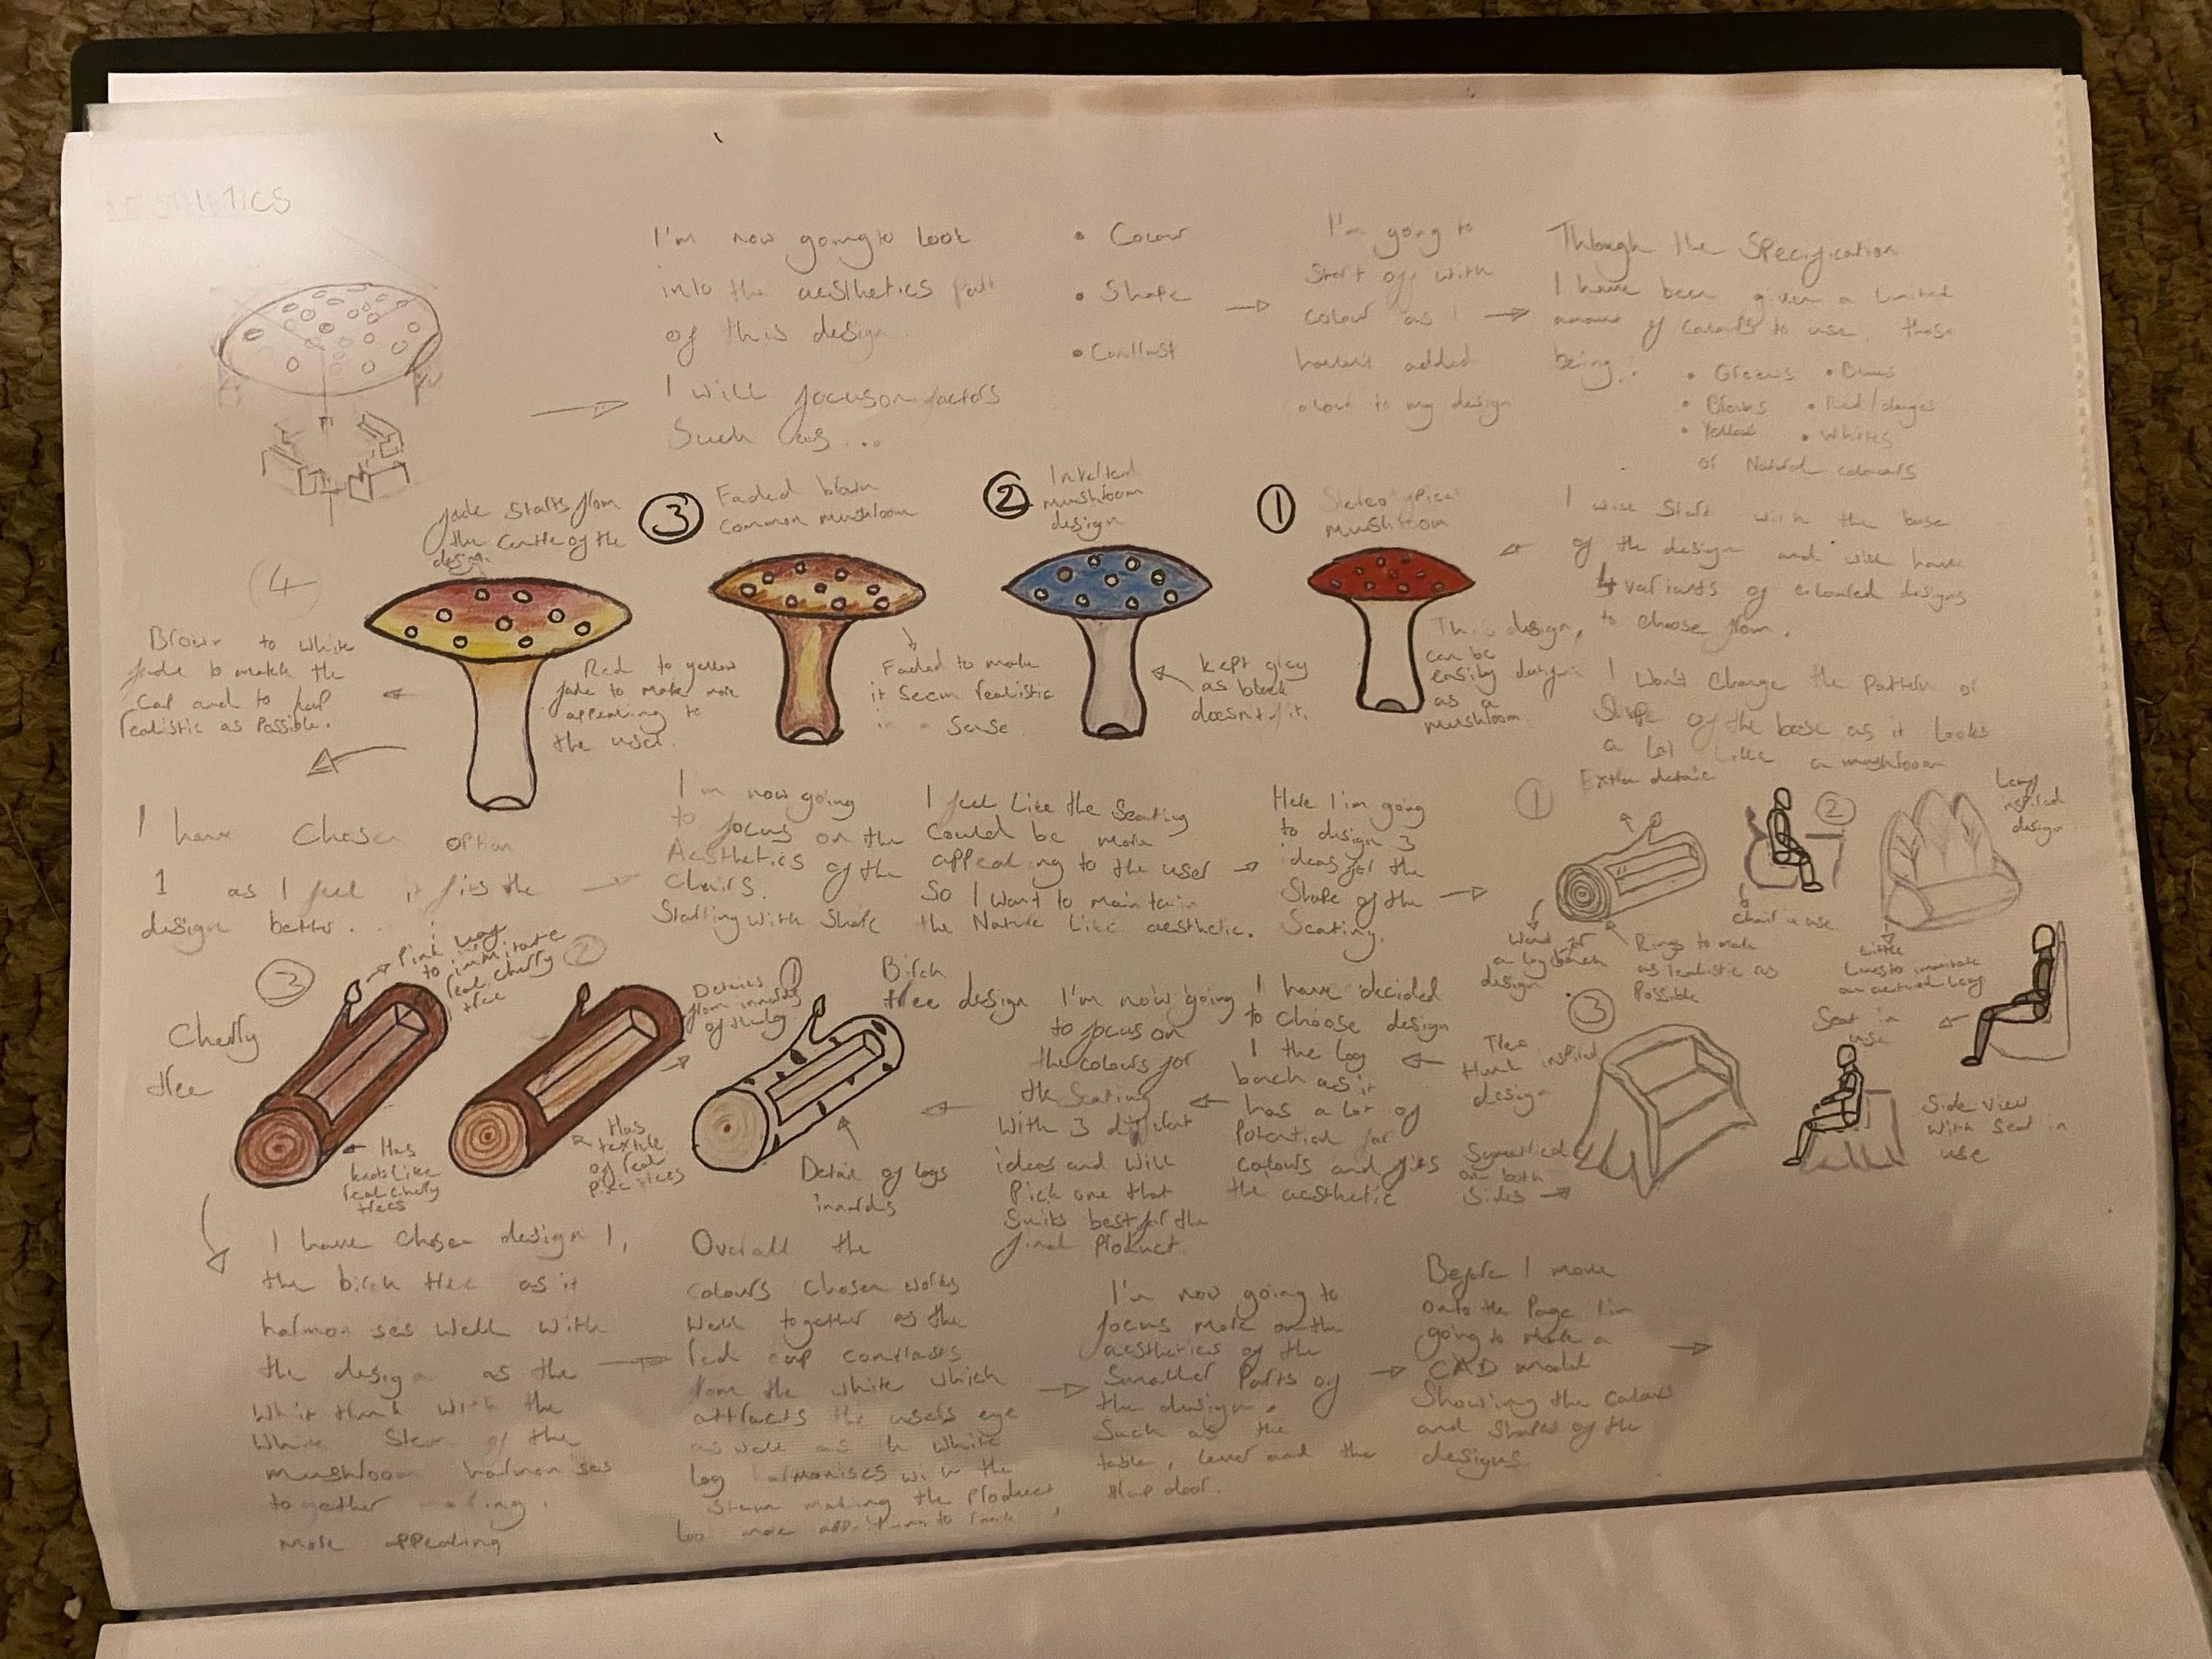 AESTHETICS
I'm now going to look
into the aesthetics part
of this design.
I will focus on factors
Such as...
• Colour
• Shape
• Contrast
I'm going to
Start off with
colour as I
haven't added
colour to my design
Through the Specification
I have been given a limited
amount of colours to use, those
being:
• Greens • Blues
• Browns • Red/oranges
• Yellow • Whites
or Natural colours
I will Start with the base
of the design and will have
4 variants of coloured designs
to choose from.
I won't change the pattern or
Shape of the base as it looks
a lot like a mushroom
1
Stereotypical
mushroom
This design,
can be
easily
as a
mushroom.
2
Inverted
mushroom
design
kept grey
as black
doesn't fit.
3
Faded brown
Common mushroom
Faded to make
it seem realistic
in a sense
4
fade starts from
the centre of the
design.
Red to yellow
fade to make more
appealing to
the user.
Brown to white
fade to match the
cap and to
realistic as possible.
I have Chosen option
1 as I feel it fits the
design better.
I'm now going
to focus on the
Aesthetics of the
chairs.
Starting with Shape
I feel Like the Seating
could be more
appealing to the user
So I want to maintain
the Nature Like aesthetic.
Here I'm going
to design 3
ideas for the
Shape of the
Seating.
1
Extra detail
Wood for
a log bench
design
Rings to make
as realistic as
Possible
2
Chair in use
Leaf
inspired
design
Little
Lines to immitate
an actual leaf
Seat in
use
3
Tree
trunk inspired
design
Symetrical
on both
sides
Side view
with Seat in
use
I have decided
to choose design
1 the log
bench as it
has a lot of
Potential for
colours and fits
the aesthetic
I'm now going
to focus on
the colours for
the Seating
with 3 different
ideas and will
Pick one that
Suits best for the
final Product.
1
Birch
tree design
Details
from innards
of the log.
Detail of logs
innards
2
Has
texture
of real
trees
3
Cherry
tree
Pink
to immitate
real cherry
tree
Has
knots Like
real cherry
trees
I have chosen design 1,
the birch tree as it
harmonises well with
the design as the
the
White Stem of the
mushroom harmonises
together making
more appealing
Overall the
colours chosen works
Well together as the
red cap contrasts
from the white which
attracts the users eye
as well as the white
log harmonises with the
Stem making the product
I'm now going to
focus more on the
aesthetics of the
Smaller Parts of
the design.
Such as the
table, lever and the
door.
Before I move
onto the Page I'm
going to make a
CAD model
Showing the colours
and Shapes of the
designs.